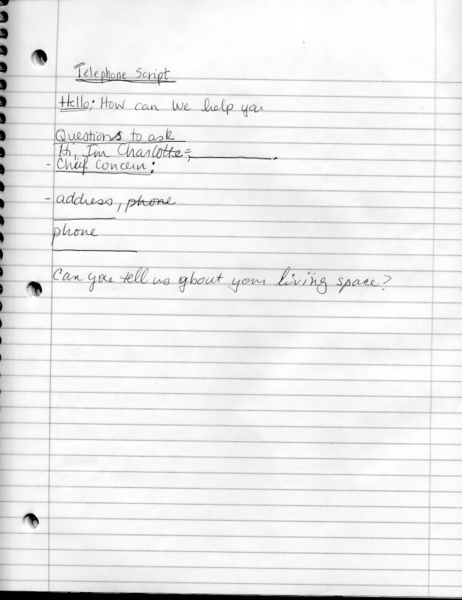 Telephone Script
Hello: How can We help you
Questions to ask
Hi, I'm Charlotte = ________.
- Chief Concern:
- address, phone
phone
Can you tell us about your living space?